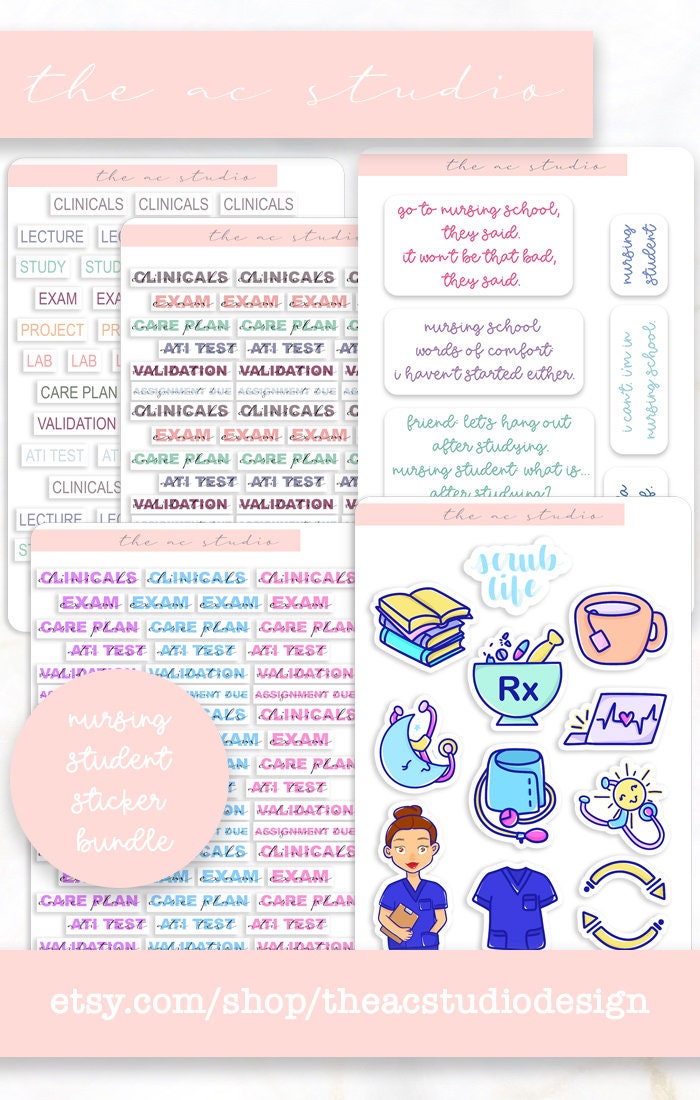 the ac studio
the ac studio
CLINICALS CLINICALS CLINICALS
LECTURE
STUDY
EXAM
PROJECT
LAB LAB
CARE PLAN
VALIDATION
ATI TEST
CLINICALS
LECTURE
the ac studio
CLINICALS CLINICALS
EXAM EXAM EXAM
CARE PLAN CARE PLAN
ATI TEST ATI TEST
VALIDATION VALIDATION
ASSIGNMENT DUE ASSIGNMENT DUE
CLINICALS CLINICALS
EXAM EXAM EXAM
CARE PLAN CARE PLAN
ATI TEST ATI TEST
VALIDATION VALIDATION
the ac studio
go to nursing school,
they said.
it won't be that bad,
they said.
nursing school
words of comfort:
i haven't started either.
friend: let's hang out
after studying.
nursing student: what is...
after studying?
nursing
student
i can't. i'm in
nursing school.
the ac studio
CLINICALS CLINICALS CLINICALS
EXAM EXAM EXAM EXAM
CARE PLAN CARE PLAN CARE PLAN
ATI TEST ATI TEST ATI TEST
VALIDATION VALIDATION VALIDATION
ASSIGNMENT DUE
CLINICALS
EXAM
CARE PLAN
ATI TEST
VALIDATION
ASSIGNMENT DUE
CLINICALS
EXAM EXAM
CARE PLAN CARE PLAN CARE PLAN
ATI TEST ATI TEST ATI TEST
VALIDATION VALIDATION VALIDATION
nursing
student
sticker
bundle
the ac studio
scrub
life
Rx
etsy.com/shop/theacstudiodesign